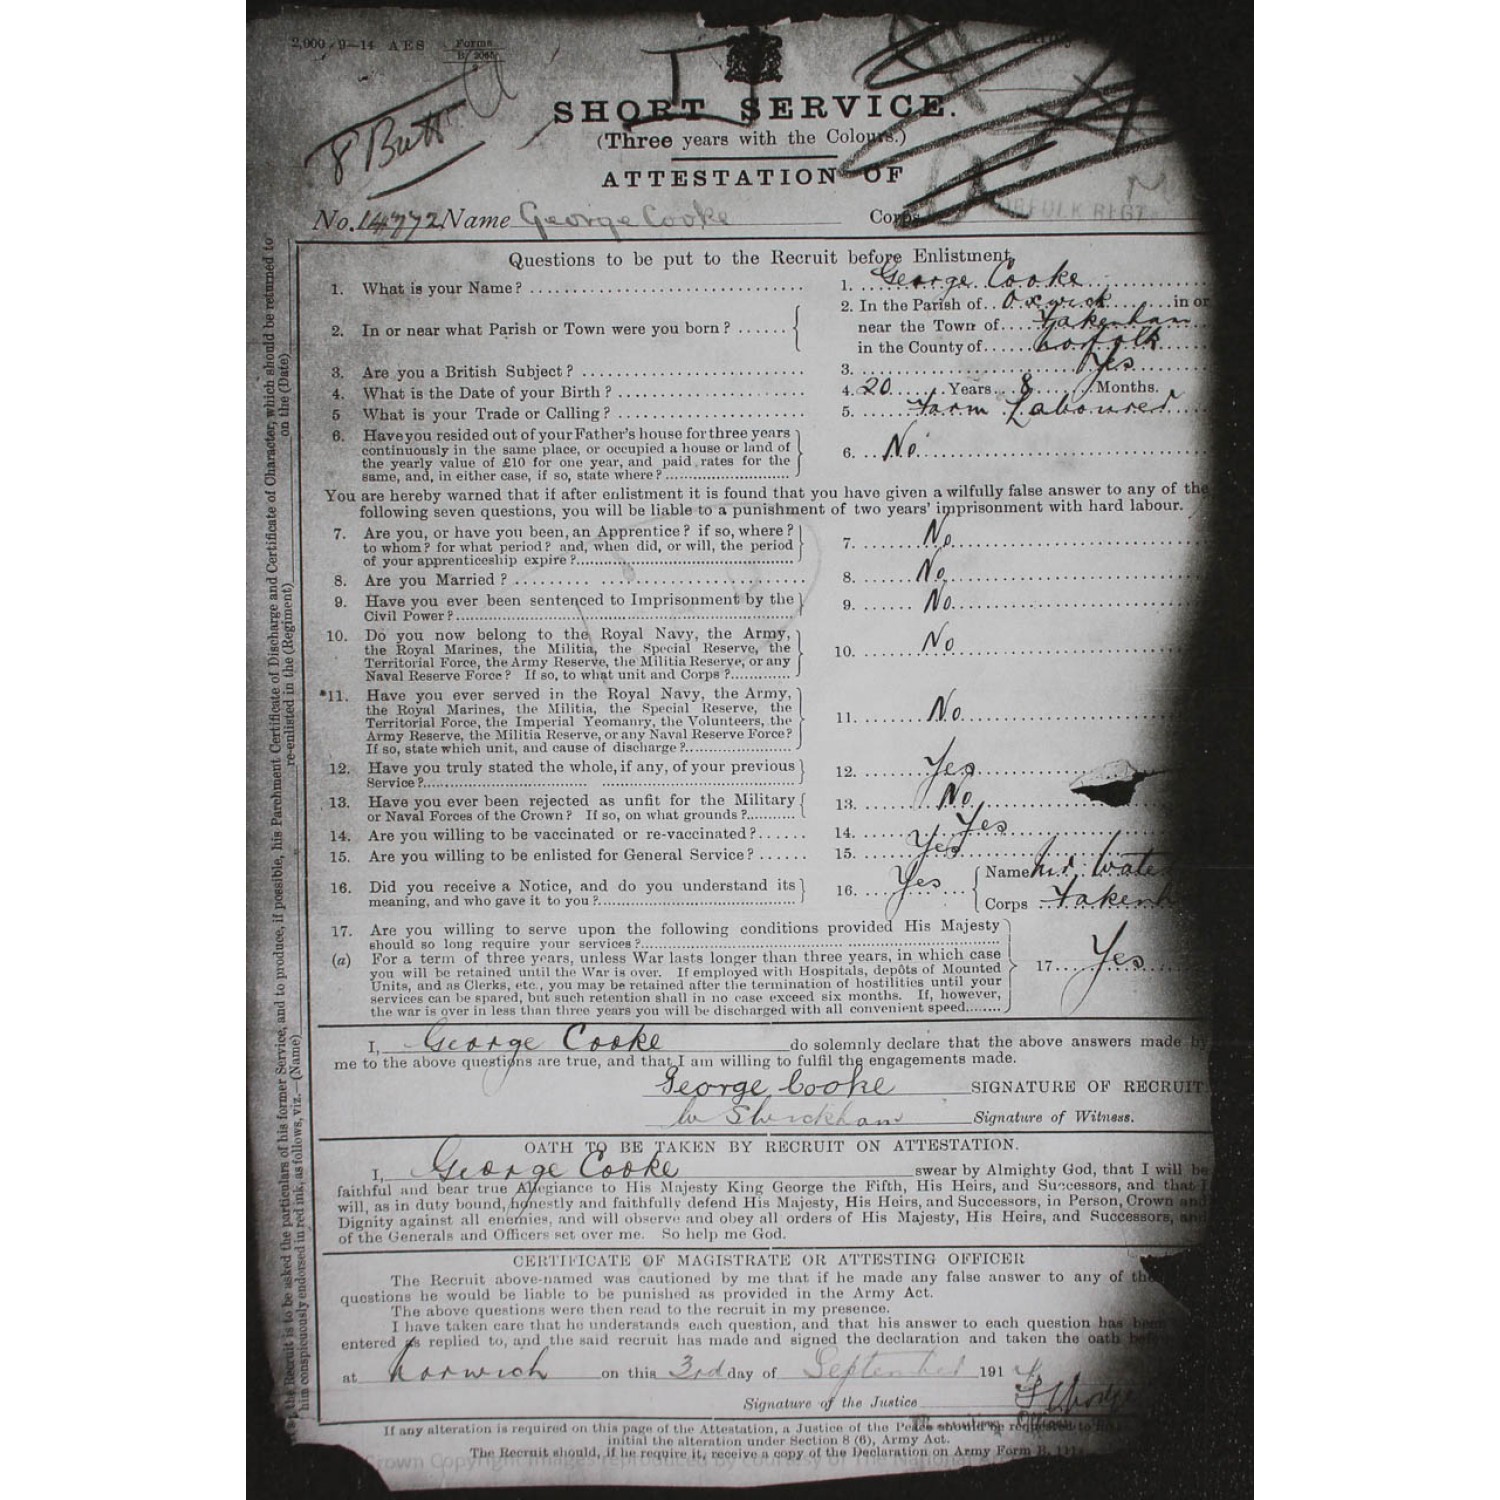 2,000 9—14 AES Forms
B. 2065
8 Batt
SHORT SERVICE.
(Three years with the Colours.)
ATTESTATION OF
No. 14772 Name George Cooke Corps NORFOLK REGT
Questions to be put to the Recruit before Enlistment.
1. What is your Name? 1. George Cooke
2. In or near what Parish or Town were you born? 2. In the Parish of Oxwick in or
near the Town of Fakenham
in the County of Norfolk
3. Are you a British Subject? 3. Yes
4. What is the Date of your Birth? 4. 20 Years 8 Months.
5 What is your Trade or Calling? 5. Farm Labourer
6. Have you resided out of your Father's house for three years
continuously in the same place, or occupied a house or land of
the yearly value of £10 for one year, and paid rates for the
same, and, in either case, if so, state where? 6. No
You are hereby warned that if after enlistment it is found that you have given a wilfully false answer to any of the
following seven questions, you will be liable to a punishment of two years' imprisonment with hard labour.
7. Are you, or have you been, an Apprentice? if so, where?
to whom? for what period? and, when did, or will, the period
of your apprenticeship expire? 7. No
8. Are you Married? 8. No
9. Have you ever been sentenced to Imprisonment by the
Civil Power? 9. No
10. Do you now belong to the Royal Navy, the Army,
the Royal Marines, the Militia, the Special Reserve, the
Territorial Force, the Army Reserve, the Militia Reserve, or any
Naval Reserve Force? If so, to what unit and Corps? 10. No
*11. Have you ever served in the Royal Navy, the Army,
the Royal Marines, the Militia, the Special Reserve, the
Territorial Force, the Imperial Yeomanry, the Volunteers, the
Army Reserve, the Militia Reserve, or any Naval Reserve Force?
If so, state which unit, and cause of discharge? 11. No
12. Have you truly stated the whole, if any, of your previous
Service? 12. Yes
13. Have you ever been rejected as unfit for the Military
or Naval Forces of the Crown? If so, on what grounds? 13. No
14. Are you willing to be vaccinated or re-vaccinated? 14. Yes
15. Are you willing to be enlisted for General Service? 15. Yes
16. Did you receive a Notice, and do you understand its
meaning, and who gave it to you? 16. Yes Name
Corps Fakenh
17. Are you willing to serve upon the following conditions provided His Majesty
should so long require your services?
(a) For a term of three years, unless War lasts longer than three years, in which case
you will be retained until the War is over. If employed with Hospitals, depôts of Mounted
Units, and as Clerks, etc., you may be retained after the termination of hostilities until your
services can be spared, but such retention shall in no case exceed six months. If, however,
the war is over in less than three years you will be discharged with all convenient speed. 17. Yes
I, George Cooke do solemnly declare that the above answers made by
me to the above questions are true, and that I am willing to fulfil the engagements made.
George Cooke SIGNATURE OF RECRUIT
Signature of Witness.
OATH TO BE TAKEN BY RECRUIT ON ATTESTATION.
I, George Cooke swear by Almighty God, that I will be
faithful and bear true Allegiance to His Majesty King George the Fifth, His Heirs, and Successors, and that I
will, as in duty bound, honestly and faithfully defend His Majesty, His Heirs, and Successors, in Person, Crown and
Dignity against all enemies, and will observe and obey all orders of His Majesty, His Heirs, and Successors, and
of the Generals and Officers set over me. So help me God.
CERTIFICATE OF MAGISTRATE OR ATTESTING OFFICER
The Recruit above-named was cautioned by me that if he made any false answer to any of the
questions he would be liable to be punished as provided in the Army Act.
The above questions were then read to the recruit in my presence.
I have taken care that he understands each question, and that his answer to each question has been
entered as replied to, and the said recruit has made and signed the declaration and taken the oath
at Norwich on this 3rd day of September 191
Signature of the Justice
If any alteration is required on this page of the Attestation, a Justice of the Peace should be requested to
initial the alteration under Section 8 (6), Army Act.
The Recruit should, if he require it, receive a copy of the Declaration on Army Form B.
Crown Copyright Images reproduced by courtesy of The
the Recruit is to be asked the particulars of his former Service, and to produce, if possible, his Parchment Certificate of Discharge and Certificate of Character, which should be returned to
him conspicuously endorsed in red ink, as follows, viz.—(Name) re-enlisted in the (Regiment) on the (Date)